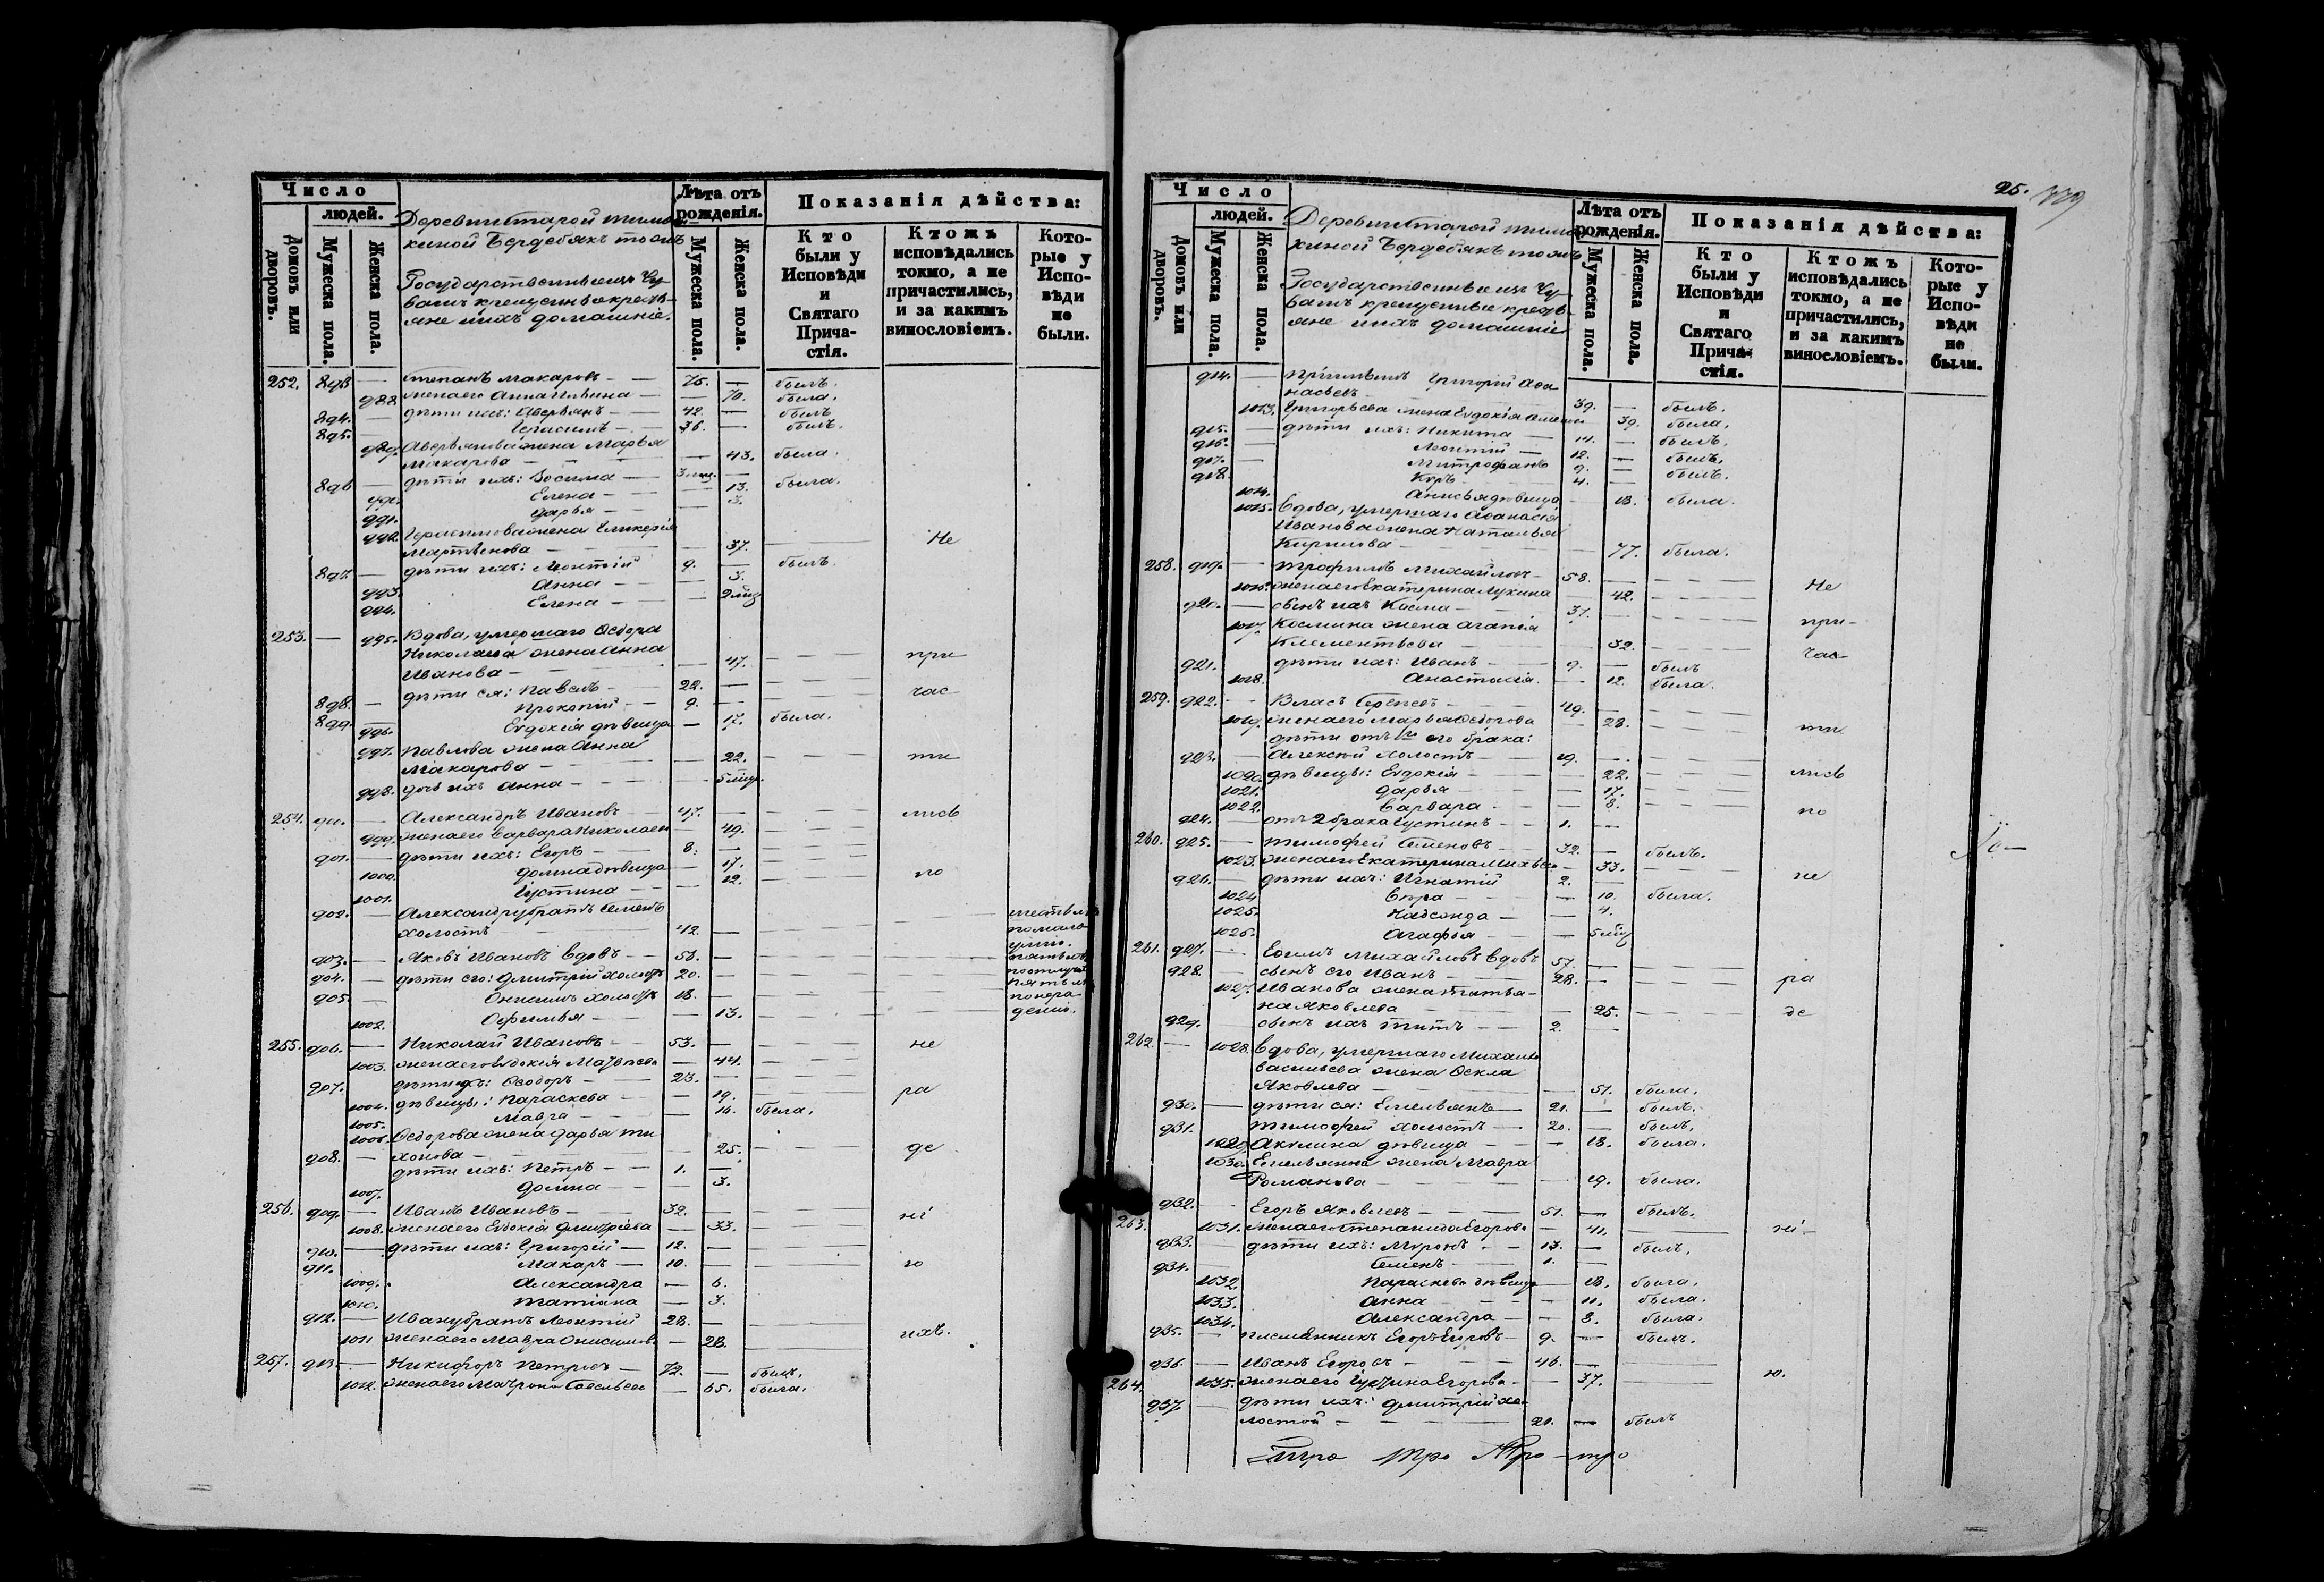 Число
людей.
Домовъ или дворовъ.
Мужеска пола.
Женска пола.
Деревни Старой Тимош-
киной Бердебякъ тожъ
Государственные изъ Чу-
вашъ крещеные кресть-
яне и ихъ домашніе.
Лѣта отъ рожденія.
Мужеска пола.
Женска пола.
Показанія дѣйства:
Кто были у Исповѣди и Святаго Прича-стія.
Ктожъ исповѣдались токмо, а не причастились, и за какимъ винословіемъ.
Кото-рые у Испо-вѣди не были.
252. 893 — Степанъ Макаровъ — 75. — былъ.
988. жена его Анна Ильина — — 70. была.
894. — дѣти ихъ: Аверьянъ — 42. — былъ
895. — Герасимъ — 36. — былъ.
989. Аверьянова жена Марья
Макарова — — 43. была.
896 — дѣти ихъ: Зосима — 3 мѣс. —
990. Елена — — 13. была.
991. Дарья — — 3.
992. Герасимова жена Гликерія
Мартынова — — 37. — Не
897. — дѣти ихъ: Леонтій 9. — былъ.
993. Анна — — 3.
994. Елена — — 2 мѣс
253. — 995. Вдова, умершаго Ѳедора
Николаева жена Анна
Иванова — — 47. — при
898. — дѣти ея: Павелъ — 22. —
899. — Прокопій — 9. — час
996. Евдокія дѣвица — 17. была.
997. Павлова жена Анна
Макарова — — 22. — ти
998. дочь ихъ Анна — — 5 мѣс.
254. 900. — Александръ Ивановъ 47. — лись
999. жена его Варвара Николаев — 49. —
901. — дѣти ихъ: Егоръ — 8. —
1000. Домна дѣвица — 17. —
1001. Густина — — 12. — по
902. — Александру братъ Семенъ
холостъ 42. —
903. — Яковъ Ивановъ вдовъ — 53. —
904. — дѣти его: Дмитрій холостъ 20. —
905 — Онисимъ холостъ 18. —
1002. Ефимья — — 13. —
255. 906. — Николай Ивановъ — 53. — не
1003. жена его Евдокія Матвѣева — 44. —
907. дѣти ихъ: Ѳеодоръ — 23. —
1004. дѣвицы: Параскева — — 19. — ра
1005. Мавра — — 16. была.
1006. Ѳедорова жена Дарья Ти
хонова — — 25. — де
908. — дѣти ихъ: Петръ — 1. —
1007. Домна — — 3.
256. 909. — Иванъ Ивановъ — 39. — ні
1008. жена его Евдокія Дмитріева — 33. —
910. — дѣти ихъ: Григорій — 12. —
911. Макаръ — 10. — го
1009. Александра — 6.
1010. Татіана — 3.
912. — Ивану братъ Леонтій 28. —
1011 жена его Мавра Онисимова — 28. ихъ.
257. 913. — Никифоръ Петровъ — 72. — былъ.
1012. жена его Матрона Савельева — 65. была.
25. 779
Число
людей.
Домовъ или дворовъ.
Мужеска пола.
Женска пола.
Деревни Старой Тимош-
киной Бердебякъ тожъ
Государственные изъ Чу-
вашъ крещеные кресть-
яне и ихъ домашніе
Лѣта отъ рожденія.
Мужеска пола.
Женска пола.
Показанія дѣйства:
Кто были у Исповѣди и Святаго Прича-стія.
Ктожъ исповѣдались токмо, а не причастились, и за какимъ винословіемъ.
Кото-рые у Испо-вѣди не были.
914. — Пріимышъ Григорій Аѳа
насьевъ — 39. — былъ.
1013. Григорьева жена Евдокія — 39. была.
915. — дѣти ихъ: Никита — 14. — былъ.
916. — Леонтій — 12. — былъ.
917. — Митрофанъ 9. — былъ.
918. Киръ — 4. —
1014. Анисья дѣвица 18. была.
1015. Вдова, умершаго Аѳанасія
Иванова жена Наталья
Кирилова — — 77. была.
258. 919. — Трофимъ Михайловъ — 58. — Не
1016. жена его Екатерина Лукина — 42. —
920. — сынъ ихъ Косма — 37. — при-
1017. Космина жена Агапія
Клементьева — 32. — час-
921. дѣти ихъ: Иванъ — 9. — былъ
1018. Анастасія. — 12. была.
259. 922. — Власъ Сергеевъ — 49. —
1019. жена его Марья Ѳедорова — 28. — ти
дѣти отъ 1го его брака:
923. — Алексѣй холостъ — 19. —
1020. дѣвицы: Евдокія — — 22. — лись
1021. Дарья — — 17. —
1022. Варвара — — 8. — по
924. — отъ 2 брака Густинъ — 1. —
260. 925. — Тимофей Семеновъ — 32. — былъ.
1023. жена его Екатерина Михѣева — 33. — не
926. — дѣти ихъ: Игнатій 2. —
1024 Вѣра — — 10. была.
1025. Надежда — — 4.
1026. Агафья — — 5 мѣс
261. 927. — Ефимъ Михайловъ вдовъ 57. —
928. — сынъ его Иванъ — 28. — ра
1027. Иванова жена Татья-
на Яковлева — — 25. — де
929. — сынъ ихъ Титъ — 2. —
262. — 1028. Вдова, умершаго Михаила
Васильева жена Ѳекла
Яковлева — — 51. была.
930. — дѣти ея: Емельянъ — 21. — былъ.
931. — Тимофей холостъ — 20. — былъ.
1029. Акулина дѣвица — — 18. была.
1030. Емельянова жена Мавра
Романова — — 19. была.
263. 932. — Егоръ Яковлевъ — 51. — былъ.
1031. жена его Степанида Егорова — 41. — ні-
933. — дѣти ихъ: Миронъ — 13. — былъ.
934. — Семенъ — 1. —
1032. Параскева дѣвица — 18. была.
1033. Анна — — 11. была.
1034. Александра — — 8. была.
935. — племянникъ Егоръ Егоровъ — 9. — былъ.
264. 936. — Иванъ Егоровъ — 46. —
1035. жена его Густина Егорова — 37. — ю.
937. — дѣти ихъ: Дмитрій хо-
лостой — 20. — былъ